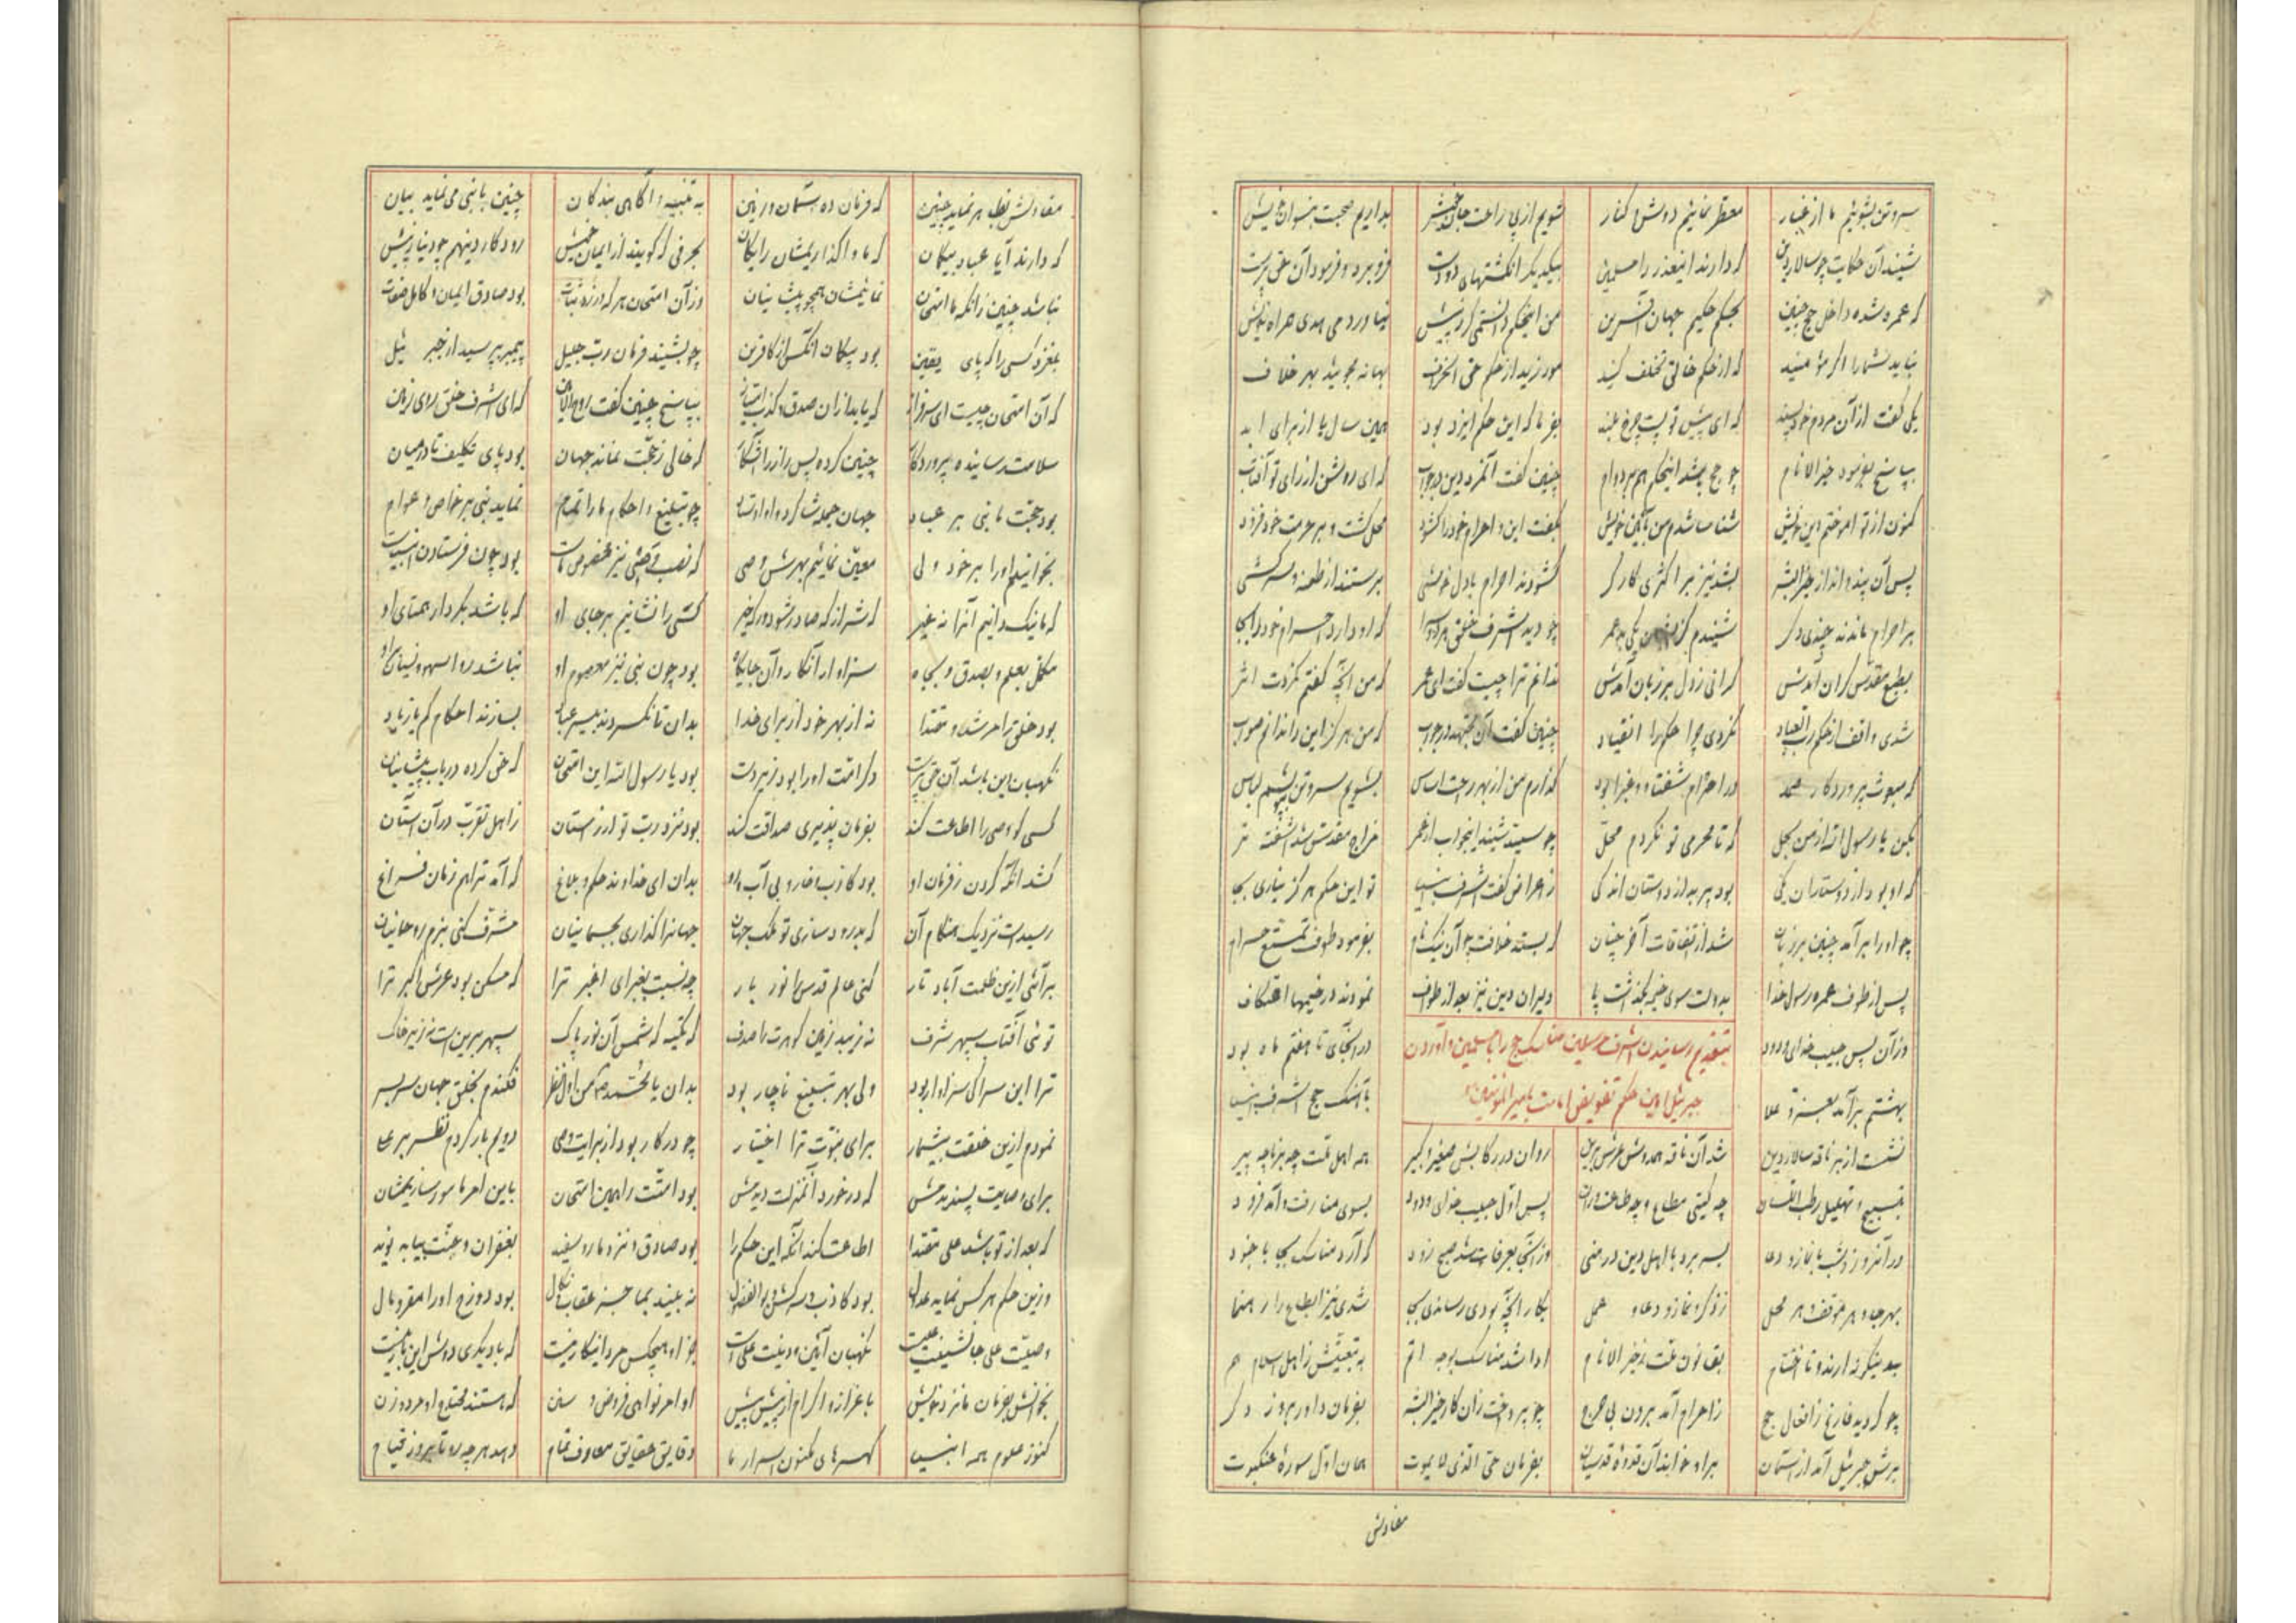 سر و تن بشوئیم ما از غبار معطر نمائیم دوش و کنار شویم از پی راحت جان خویش بداریم صحبت بنسوان خویش
شنید آن حکایت چو سالار دین که دارند اینعذر را مسلمین بیکدیگر انگشتهای دو دست فرو برد و فرمود آن حق پرست
که عمره شده داخل حج چنین بحکم حکیم جهان آفرین من اینحکم دانستمی گر ز پیش نیاوردمی هدی همراه خویش
نباید شما را اگر مؤمنید که از حکم خالق تخلف کنید مورزید از حکم حق انحراف بهانه مجوئید بهر خلاف
یکی گفت از آن مردم خودپسند که ای پیش تو پست چرخ بلند بفرما که این حکم ایزد بود همین سال یا از برای ابد
بپاسخ بفرمود خیر الانام چو حج باشد اینحکم هم بر دوام چنین گفت آنمرد دین در جواب که ای روشن از رای تو آفتاب
کنون از تو آموختم دین خویش شناسا شدم من بآئین خویش بگفت این و احرام خود را گشود محل گشت و بر حرمت خود فزود
پس آن پند و انذار خیر البشر بشد نیز بر اکثری کارگر گشودند احرام با دل خوشی برستند از طعنه و سرکشی
بر احرام ماندند چندی دگر شنیدم کزیشان یکی بد عمر چو دید اشرف خلق مر او را که او دارد احرام خود را بجا
بطبع مقدس گران آمدش گرانی ز دل بر زبان آمدش ندانم ترا چیست گفت ای عمر که من آنچه گفتم نکردت اثر
شدی واقف از حکم رب العباد نکردی چرا حکم را انقیاد چنین گفت آن در جواب که من هرگز این را ندانم صواب
که مبعوث پروردگار در احرام آشفته و گذارم من از بهر راحت اساس بشویم سر و تن بپوشم لباس
بکن یا رسول الله از من بحل که تا محرمی تو نگردم محل چو سید شنید اینجواب از عمر مزاج مقدس شد آشفته تر
که او بود از دوستاران یکی بود به از دوستان اندکی ز اعراض گفت اشرف انبیا تو این حکم هرگز نیاری بجا
چو او را برآمد چنین بر زبان شد از اتفاقات آخر چنان که بستد خلافت چو آن نیک نام بفرمود طوف تمتع حرام
پس از طوف عمره رسول خدا بدولت سوی خیمه بگذاشت پا دلیران دین نیز بعد از طواف نمودند در خیمها اعتکاف
وزان پس حبیب خدای ودود در آنجای تا هفتم ماه بود
بتقدیم رسانیدن اشرف مرسلین مناسک حج را با مسلمین و آوردن
جبرئیل امین حکم تفویض امامت بامیر المؤمنین
بهشتم برآمد بعز و علا بآهنگ حج اشرف انبیا
نشست از بر ناقه سالار دین شد آن ناقه همدوش عرش برین روان در رکابش صغیر و کبیر همه اهل ملت چه برنا چه پیر
بتسبیح و تهلیل رطب اللسان چه گیتی مطاع و چه طاعت وران پس اول حبیب خدای ودود بسوی منا رفت و آمد فرود
در آنروز و شب با نماز و دعا بسر برد با اهل دین در منی وز آنجا بعرفات شد صبح زود که آرد مناسک بجا با جنود
بهر جا و هر موقف و هر محل ز ذکر و نماز و دعا و عمل بکار آنچه بودی رساندی بجا شدی نیز اتباع را رهنما
بدینگونه ارند و تا اختتام بقانون ملت ز خیر الانام ادا شد مناسک بوجه اتم به تبعیتش ز اهل اسلام هم
چو گردید فارغ ز افعال حج ز احرام آمد برون بی حرج چو پرداخت زان کار خیر البشر بفرمان داور بروز دگر
برش جبرئیل آمد از آسمان بر او خواند آن قدوهٔ قدسیان بفرمان حق الذی لا یموت همان اول سورهٔ عنکبوت
مفادش
مفادش بظاهر نماید چنین که فرمان ده آسمان و زمین به تنبیه و آگاهی بندگان چنین با نبی می نماید بیان
که دارند آیا عباد بیگمان که ما واگذاریمشان رایگان بحرفی که گویند از ایمان خویش رود کار دینهم چو دنیا ز پیش
نباشد چنین زانکه ما امتحان نمائیمشان همچو پیشینیان وز آن امتحان هر که ورزد ثبات بود صادق ایمان و کامل صفات
بلغزد کسی را که پای یقین بود بیگمان آنکس از کافرین چو بشنید فرمان رب جلیل پیمبر بپرسید از جبرئیل
که آن امتحان چیست ای سرفراز که یابد از آن صدق و کذب امتیاز بپاسخ چنین گفت روح الامین که ای اشرف خلق روی زمین
سلامت رسانیده پروردگار چنین کرده پس راز را آشکار که خالی ز حجت نماند جهان بود پای تکلیف تا در میان
بود حجت ما نبی بر عباد جهان جمله شاگرد و او اوستاد چو تبلیغ احکام ما را تمام نماید نبی بر خواص و عوام
بخوانیم او را بر خود ولی معین نمائیم بهرش وصی که نصب وصی نیز مخصوص ماست بود چون فرستادن انبیاست
که ما نیک دانیم آنرا نه غیر که شر از که صادر شود ور که خیر کسی را نشانیم بر جای او که باشد بکردار همتای او
مکمل بعلم و بصدق و بجاه سزاوار آنکار و آن جایگاه بود چون نبی نیز معصوم او نباشد روا سهو و نسیان برو
بود خلق را مرشد و مقتدا نه از بهر خود از برای خدا بدان تا نگردند بسازند احکام کم یا زیاد
نگهبان این باشد آن حق پرست در امت او را بود زیر دست بود یا رسول الله این امتحان که حق کرده در باب پیشینیان
کسی کو وصی را اطاعت کند بفرمان پذیری صداقت کند بود نزد رب تو از راستان ز اهل تقرب در آن آستان
کشد آنکه گردن ز فرمان او بود کاذب و خار و بی آبرو بدان ای خداوند حکم و بلاغ که آمد ترا هم زمان فراغ
رسیدست نزدیک هنگام آن که پدرود سازی تو ملک جهان جهانرا گذاری بجسمانیان مشرف کنی بزم روحانیان
برآئی ازین ظلمت آباد تار کنی عالم قدس را نور بار چه نسبت بغبرای اغبر ترا که مسکن بود عرش اکبر ترا
توئی آفتاب سپهر شرف نه زیبد زمین گوهرت را صدف که تکیه که شمس آن نور پاک سپهر برین است نه زیر خاک
ترا این سرا کی سزاوار بود ولی بهر تبلیغ ناچار بود بدان یا محمد اول نظر فکندم بخلق جهان سر بسر
نمودم ازین خلقت بیشمار برای نبوت ترا اختیار چو در کار بود از برایت وصی دویم بار کردم نظر بر علی
برای وصایت پسندیدمش که در خورد آنمنزلت دیدمش بود امتت را همین امتحان باین امر مامور سازیمشان
که بعد از تو باشد علی مقتدا اطاعت کند آنکه این حکم را بود صادق و نزد ما رو سفید بغفران و جنت بیابد نوید
وزین حکم هر کس نماید عدول بود کاذب و سرکش و بوالفضول نه بیند بما جز عقاب و نکال بود دوزخ او را مقر و مآل
وصیت علی جانشینت علیست نگهبان آئین و دینت علیست جز او هیچکس مرد اینکار نیست که با دیگری دوش این بار نیست
بخوانش بفرمان ما نزد خویش با عزاز و اکرام از پیش بیش اوامر نواهی فروض و سنن که هستند محتاج او مرد و زن
کنوز علوم همه انبیا گهرهای مکنون اسرار ما دقایق حقایق معارف تمام دهد هر چه رو تا بروز قیام